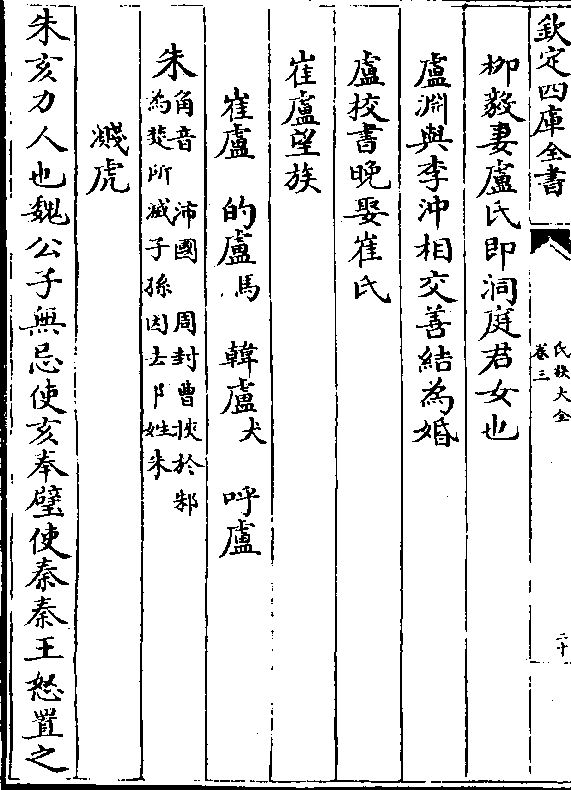 欽定四庫全書
氏族大全
卷三
二十
柳毅妻盧氏即洞庭君女也
盧淵與李沖相交善結為婚
盧校書晚娶崔氏
崔盧望族
崔盧 的盧馬 韓盧犬 呼盧
朱角音 沛國 周封曹挾於邾
為楚所滅子孫因去阝姓朱
濺虎
朱亥力人也魏公子無忌使亥奉璧使秦秦王怒置之